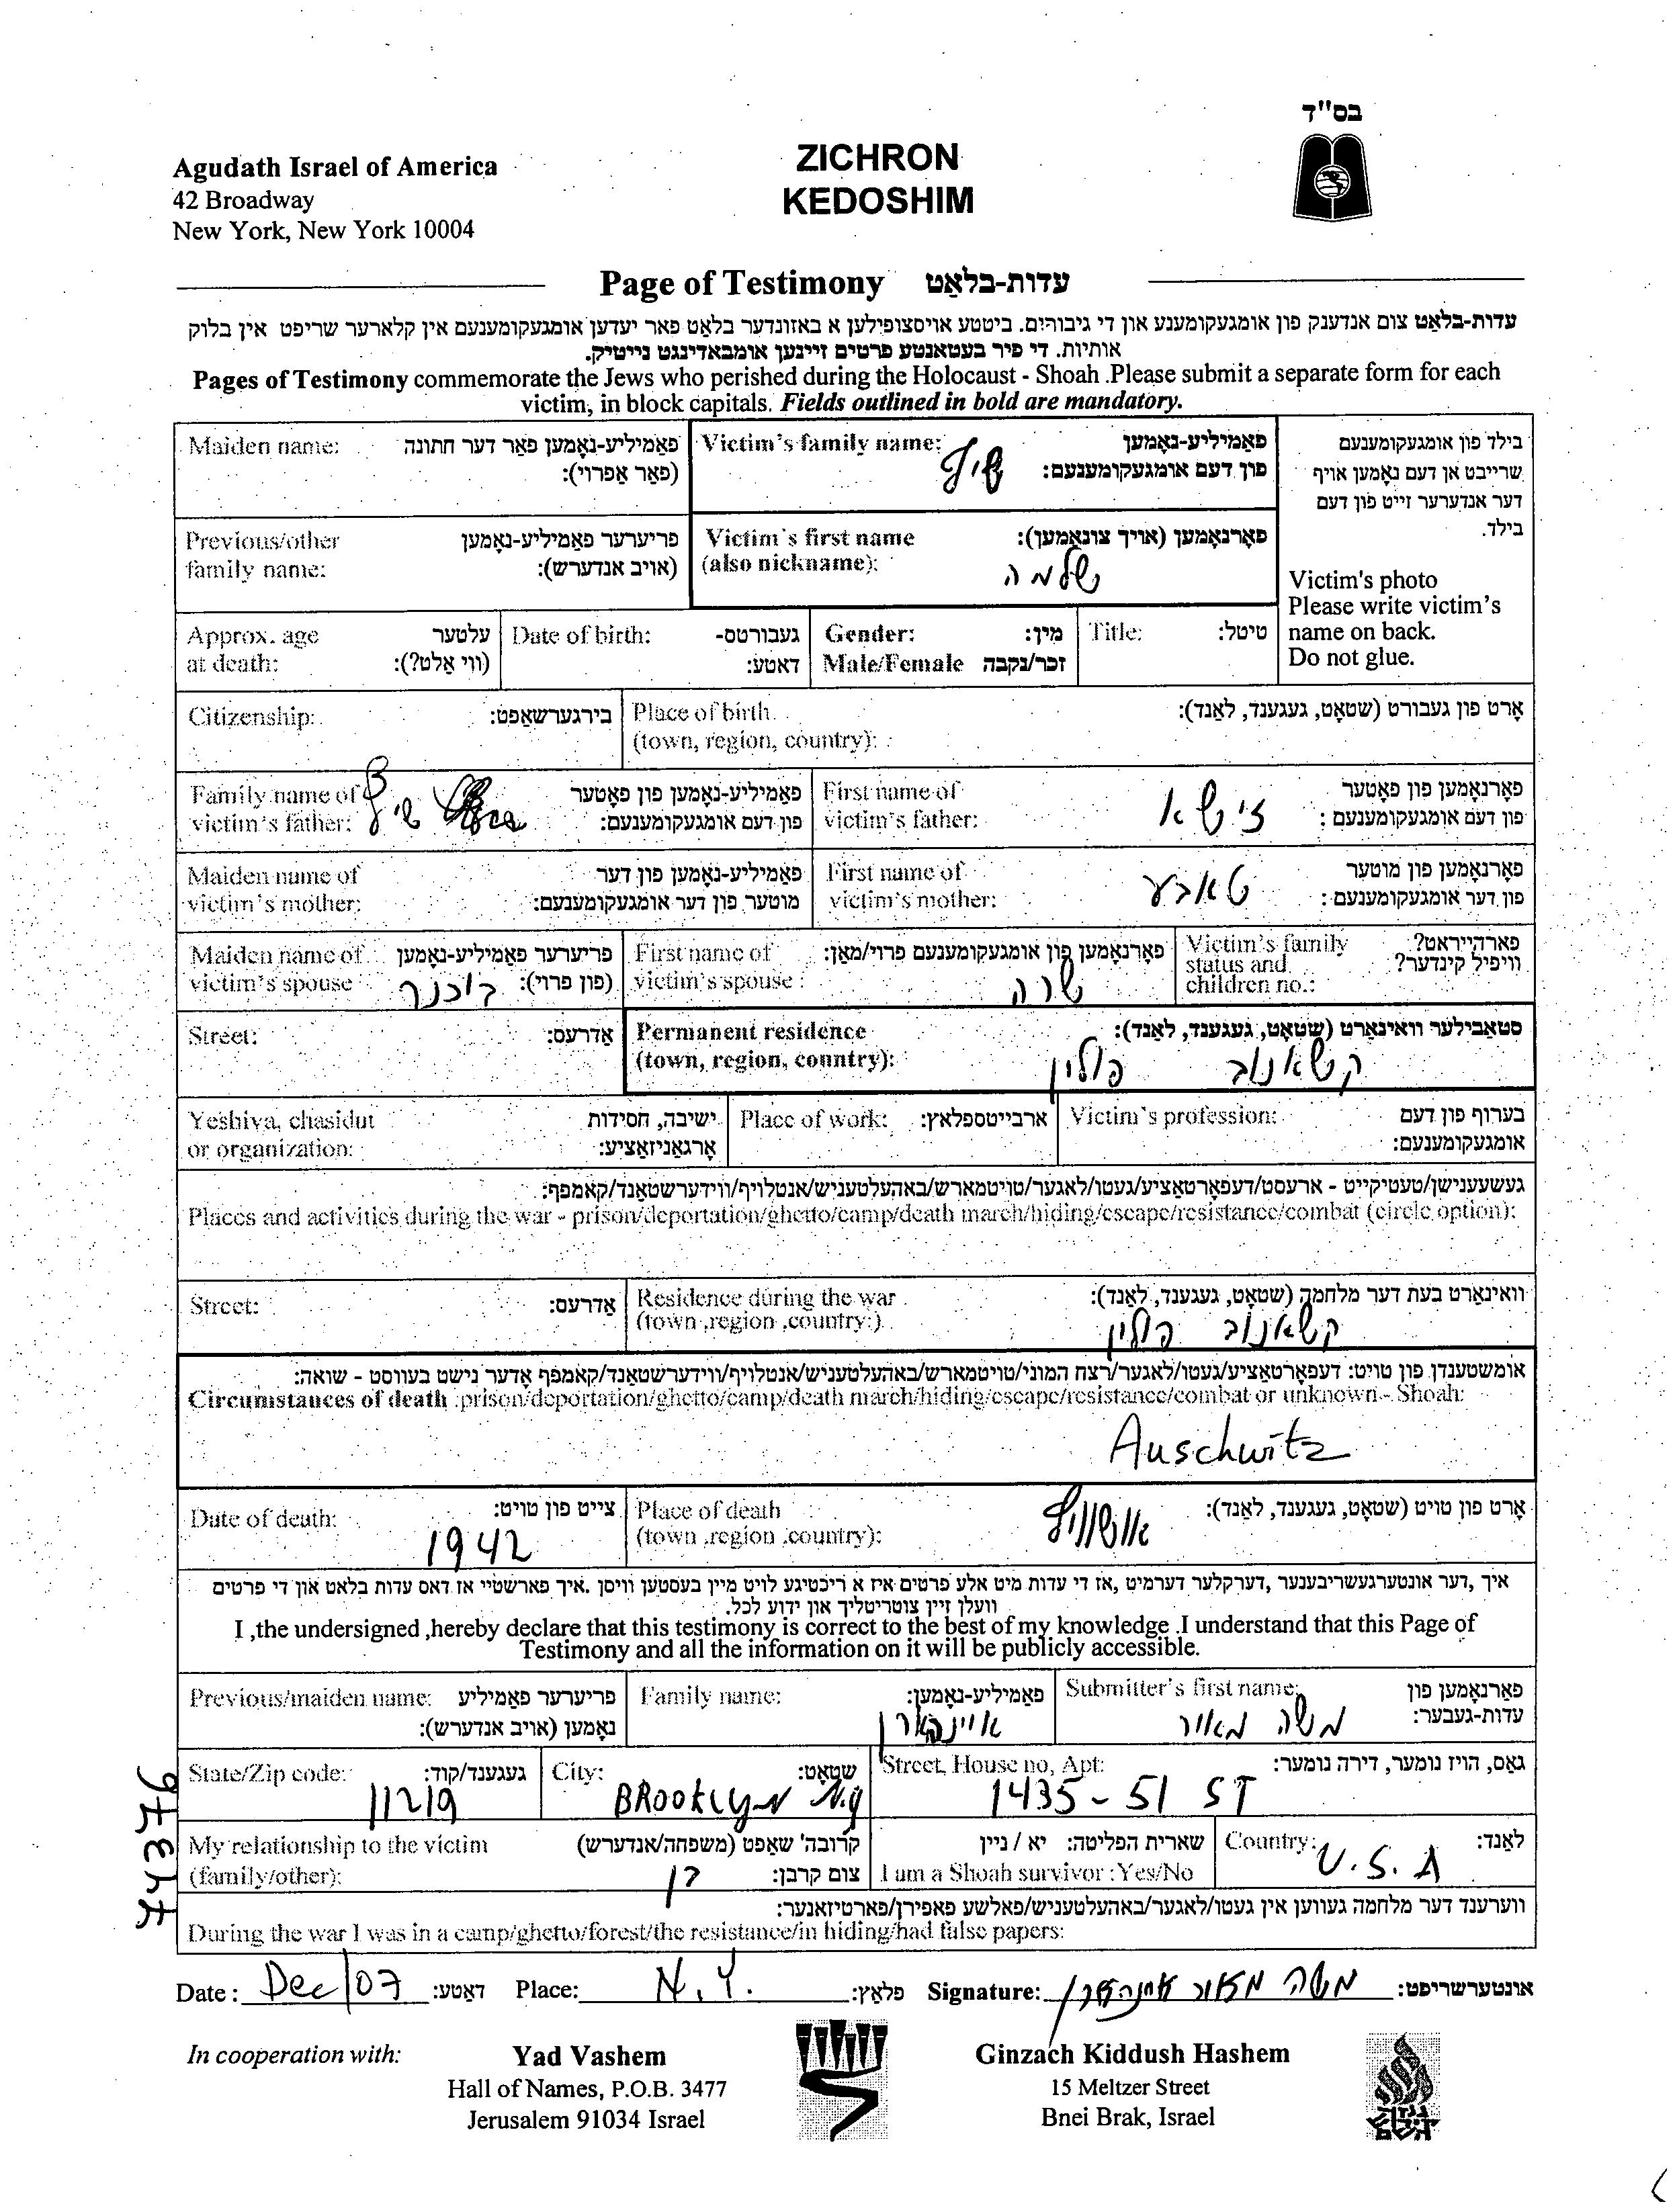 בס"ד
Agudath Israel of America
42 Broadway
New York, New York 10004
ZICHRON
KEDOSHIM
Page of Testimony עדות-בלאַט
עדות-בלאַט צום אנדענק פון אומגעקומענע און די גיבורים. ביטטע אויסצופילען א באזונדער בלאַט פאר יעדען אומגעקומענעם אין קלארער שריפט אין בלוק
אותיות. די פיר בעטאנטע פרטים זיינען אומבאדינגט נייטיק.
Pages of Testimony commemorate the Jews who perished during the Holocaust - Shoah .Please submit a separate form for each
victim, in block capitals. Fields outlined in bold are mandatory.
Maiden name: פאַמיליע-נאָמען פאַר דער חתונה
(פאַר אַפרוי):
Victim's family name: פאַמיליע-נאָמען
פון דעם אומגעקומענעם: שיף
בילד פון אומגעקומענעם
שרייבט אן דעם נאָמען אויף
דער אנדערער זייט פון דעם
בילד.
Victim's photo
Please write victim's
name on back.
Do not glue.
Previous/other פריערער פאַמיליע-נאָמען
family name: (אויב אנדערש):
Victim's first name פאָרנאָמען (אויך צונאָמען):
(also nickname): שלמה
Approx. age עלטער
at death: (ווי אַלט?):
Date of birth: געבורטס-
דאטע:
Gender: מין:
Male/Female זכר/נקבה
Title: טיטל:
Citizenship: בירגערשאַפט:
Place of birth אָרט פון געבורט (שטאָט, געגענד, לאַנד):
(town, region, country):
Family name of פאַמיליע-נאָמען פון פאָטער
victim's father: פון דעם אומגעקומענעם: שיף
First name of פאָרנאָמען פון פאָטער
victim's father: פון דעם אומגעקומענעם : זישא
Maiden name of פאַמיליע-נאָמען פון דער
victim's mother: מוטער פון דער אומגעקומענעם:
First name of פאָרנאָמען פון מוטער
victim's mother: פון דער אומגעקומענעם : טאבע
Maiden name of פריערער פאַמיליע-נאָמען
victim's spouse (פון פרוי): בוכנר
First name of פאָרנאָמען פון אומגעקומענעם פרוי/מאַן:
victim's spouse : שרה
Victim's family פארהייראט?
status and וויפיל קינדער?
children no.:
Street: אַדרעס:
Permanent residence סטאַבילער וואינאָרט (שטאָט, געגענד, לאַנד):
(town, region, country): קשאנוב פולין
Yeshiva, chasidut ישיבה, חסידות
or organization: אָרגאַניזאַציע:
Place of work: ארבייטספלאץ:
Victim's profession: בערוף פון דעם
אומגעקומענעם:
געשעענישן/טעטיקייט - ארעסט/דעפּאָרטאַציע/געטו/לאגער/טויטמארש/באהעלטעניש/אנטלויף/ווידערשטאַנד/קאמפף:
Places and activities during the war - prison/deportation/ghetto/camp/death march/hiding/escape/resistance/combat (circle option):
Street: אַדרעס:
Residence during the war וואינאָרט בעת דער מלחמה (שטאָט, געגענד, לאַנד):
(town ,region ,country:) קשאנוב פולין
אומשטענדן פון טויט: דעפּאָרטאַציע/געטו/לאגער/רצח המוני/טויטמארש/באהעלטעניש/אנטלויף/ווידערשטאַנד/קאמפף אָדער נישט בעוווסט - שואה:
Circumstances of death :prison/deportation/ghetto/camp/death march/hiding/escape/resistance/combat or unknown - Shoah:
Auschwitz
Date of death: צייט פון טויט:
1942
Place of death אָרט פון טויט (שטאָט, געגענד, לאַנד):
(town ,region ,country):
איך ,דער אונטערגעשריבענער ,דערקלער דערמיט ,אז די עדות מיט אלע פרטים איז א ריכטיגע לויט מיין בעסטען וויסן .איך פארשטיי אז דאס עדות בלאט און די פרטים
וועלן זיין צוטריטליך און ידוע לכל.
I ,the undersigned ,hereby declare that this testimony is correct to the best of my knowledge .I understand that this Page of
Testimony and all the information on it will be publicly accessible.
Previous/maiden name: פריערער פאַמיליע
נאָמען (אויב אנדערש):
Family name: פאַמיליע-נאָמען:
איינהארן
Submitter's first name: פאָרנאָמען פון
עדות-געבער: משה מאיר
State/Zip code: געגענד/קוד:
11219
City: שטאָט:
BROOKLYN N.Y
Street, House no, Apt: גאַס, הויז נומער, דירה נומער:
1435 - 51 ST
My relationship to the victim קרובה' שאַפט (משפחה/אנדערש)
(family/other): צום קרבן: בן
שארית הפליטה: יא / ניין
I am a Shoah survivor :Yes/No
Country: לאַנד:
U.S.A
ווערענד דער מלחמה געווען אין געטו/לאגער/באהעלטעניש/פאלשע פאפירן/פארטיזאנער:
During the war I was in a camp/ghetto/forest/the resistance/in hiding/had false papers:
Date : Dec/07 דאטע: Place: N.Y. פלאַץ: Signature: משה מאיר איינהארן אונטערשריפט:
In cooperation with:
Yad Vashem
Hall of Names, P.O.B. 3477
Jerusalem 91034 Israel
Ginzach Kiddush Hashem
15 Meltzer Street
Bnei Brak, Israel